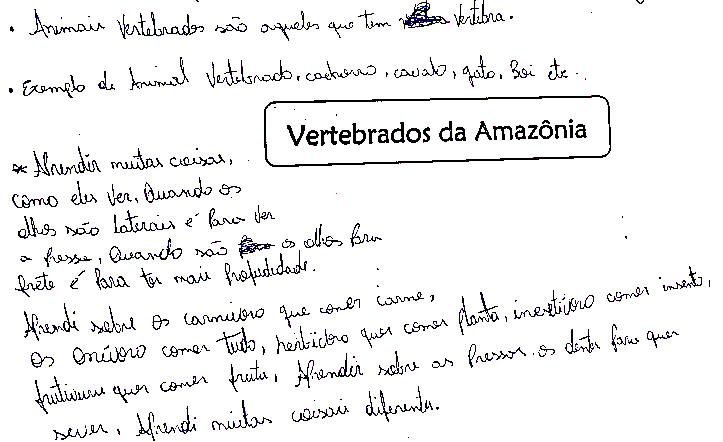 • Animais Vertebrados são aqueles que tem Vertebra.
• Exemplo de Animal Vertebrado, cachorro, cavalo, gato, Boi etc.
Vertebrados da Amazônia
* Aprendir muitas coisas,
como eles Ver, Quando os
olhos são laterais é Para Ver
a Presse, Quando são os olhos Para
frete é Para ter mais Profudidade.
Aprendi sobre os carnivoro que comer carne,
os onivoro comer tudo, herbivoro quer comer planta, inсetivoro comer inseto,
frutivuru quer comer fruta, Aprendir sobre as Pressas os denti para quer
sever, Aprendi muitas coisas diferente.